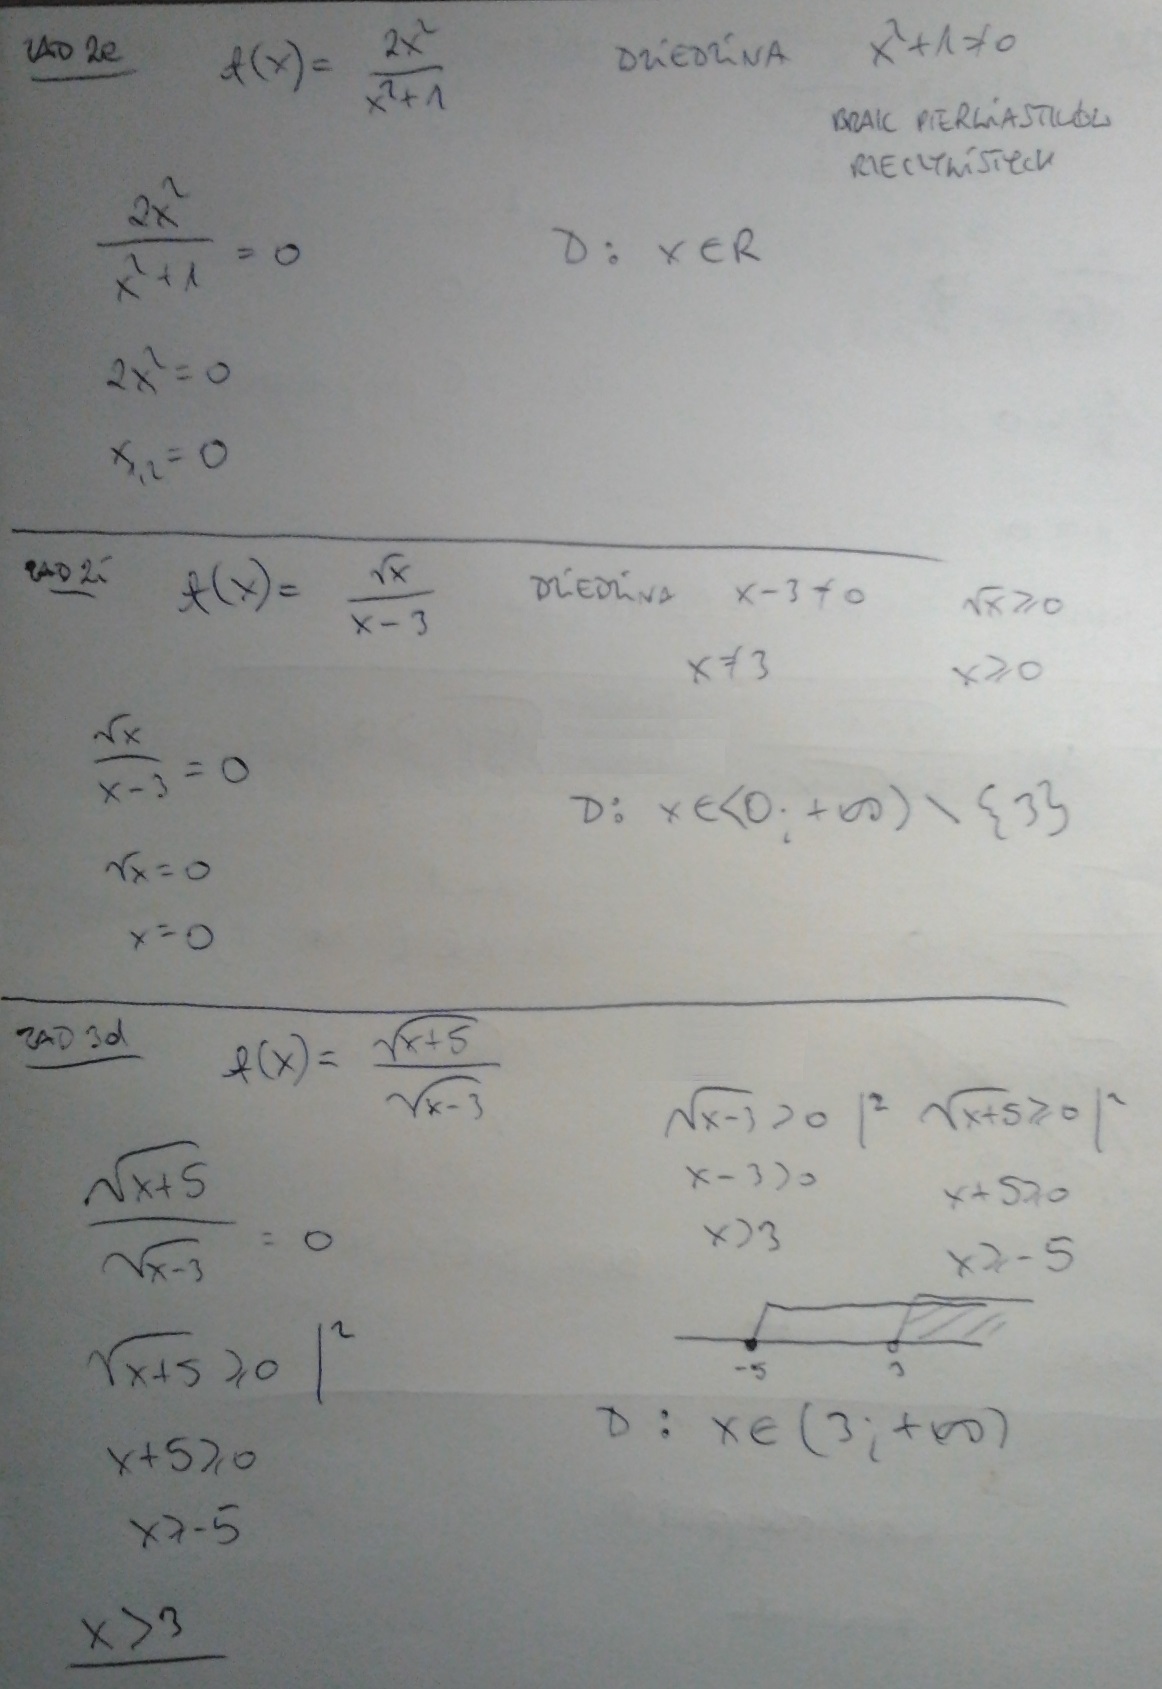 ZAD 2e f(x) = 2x²/(x²+1) DZIEDZINA x²+1≠0
BRAK PIERWIASTKÓW
RZECZYWISTYCH
2x²/(x²+1) = 0 D: x∈R
2x² = 0
x₁,₂ = 0
ZAD 2i f(x) = √x/(x-3) DZIEDZINA x-3≠0 √x≥0
x≠3 x≥0
√x/(x-3) = 0 D: x∈<0; +∞) \ {3}
√x = 0
x = 0
ZAD 3d f(x) = √(x+5)/√(x-3)
√(x-3)>0 |² √(x+5)≥0 |²
x-3>0 x+5≥0
x>3 x≥-5
√(x+5)/√(x-3) = 0
-5 3
√(x+5) ≥0 |²
D: x∈(3; +∞)
x+5≥0
x≥-5
x>3